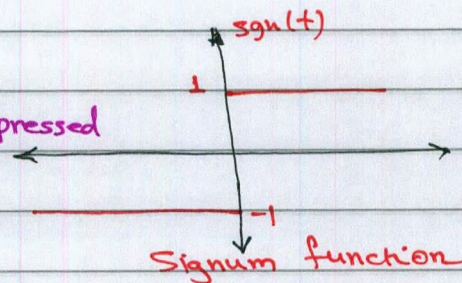 sgn(t)
1
pressed
-1
Signum function